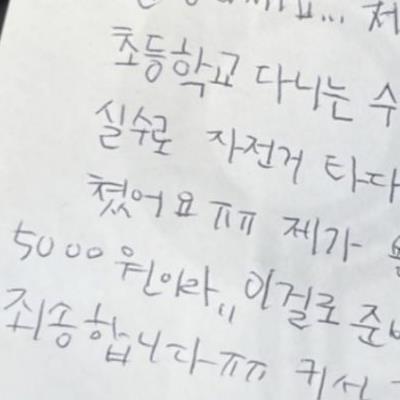 초등학교 다니는 수
실수로 자전거 타다
쳤어요 ㅠㅠ 제가
5000 원이라,, 이걸로 준비
죄송합니다ㅠㅠ